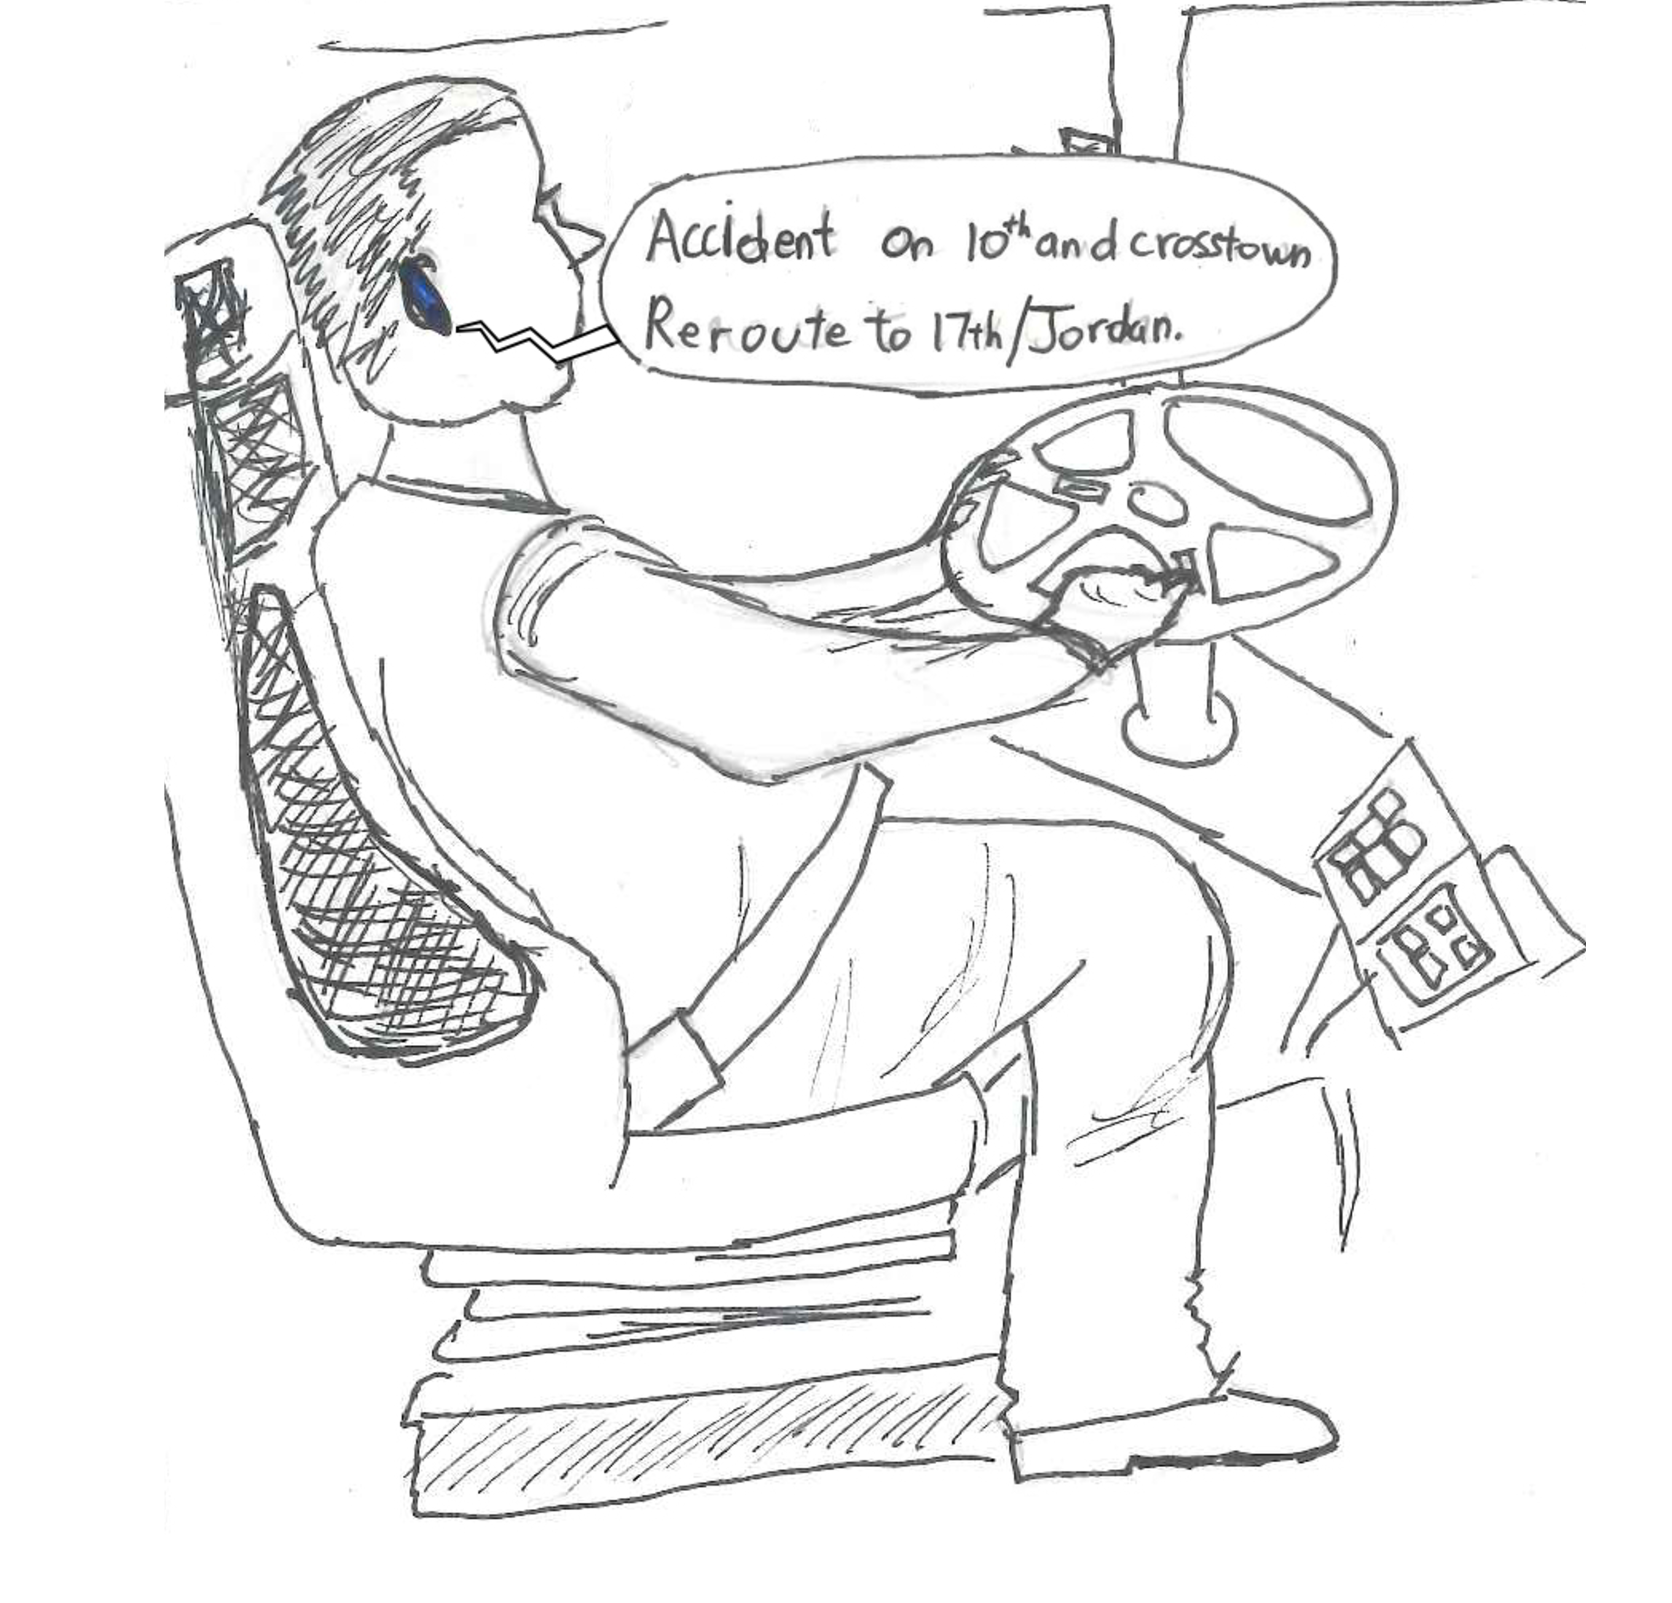 Accident on 10th and crosstown
Reroute to 17th/Jordan.